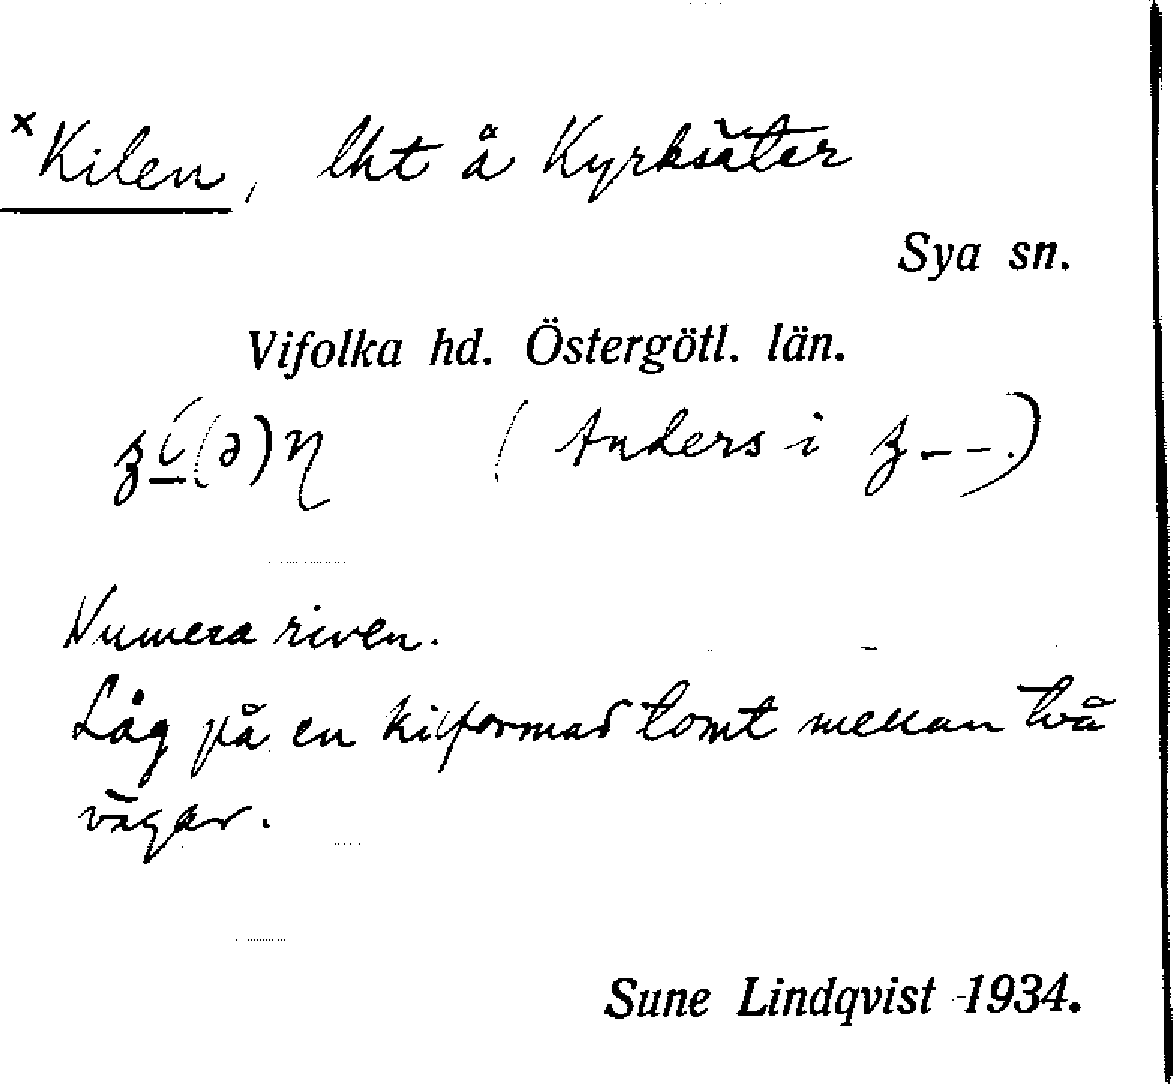 × Kilen, lht å Kyrksäter
Sya sn.
Vifolka hd. Östergötl. län.
(Anders i ʒ--.)
Numera riven.
Låg på en kilformad tomt mellan två
vägar.
Sune Lindqvist 1934.